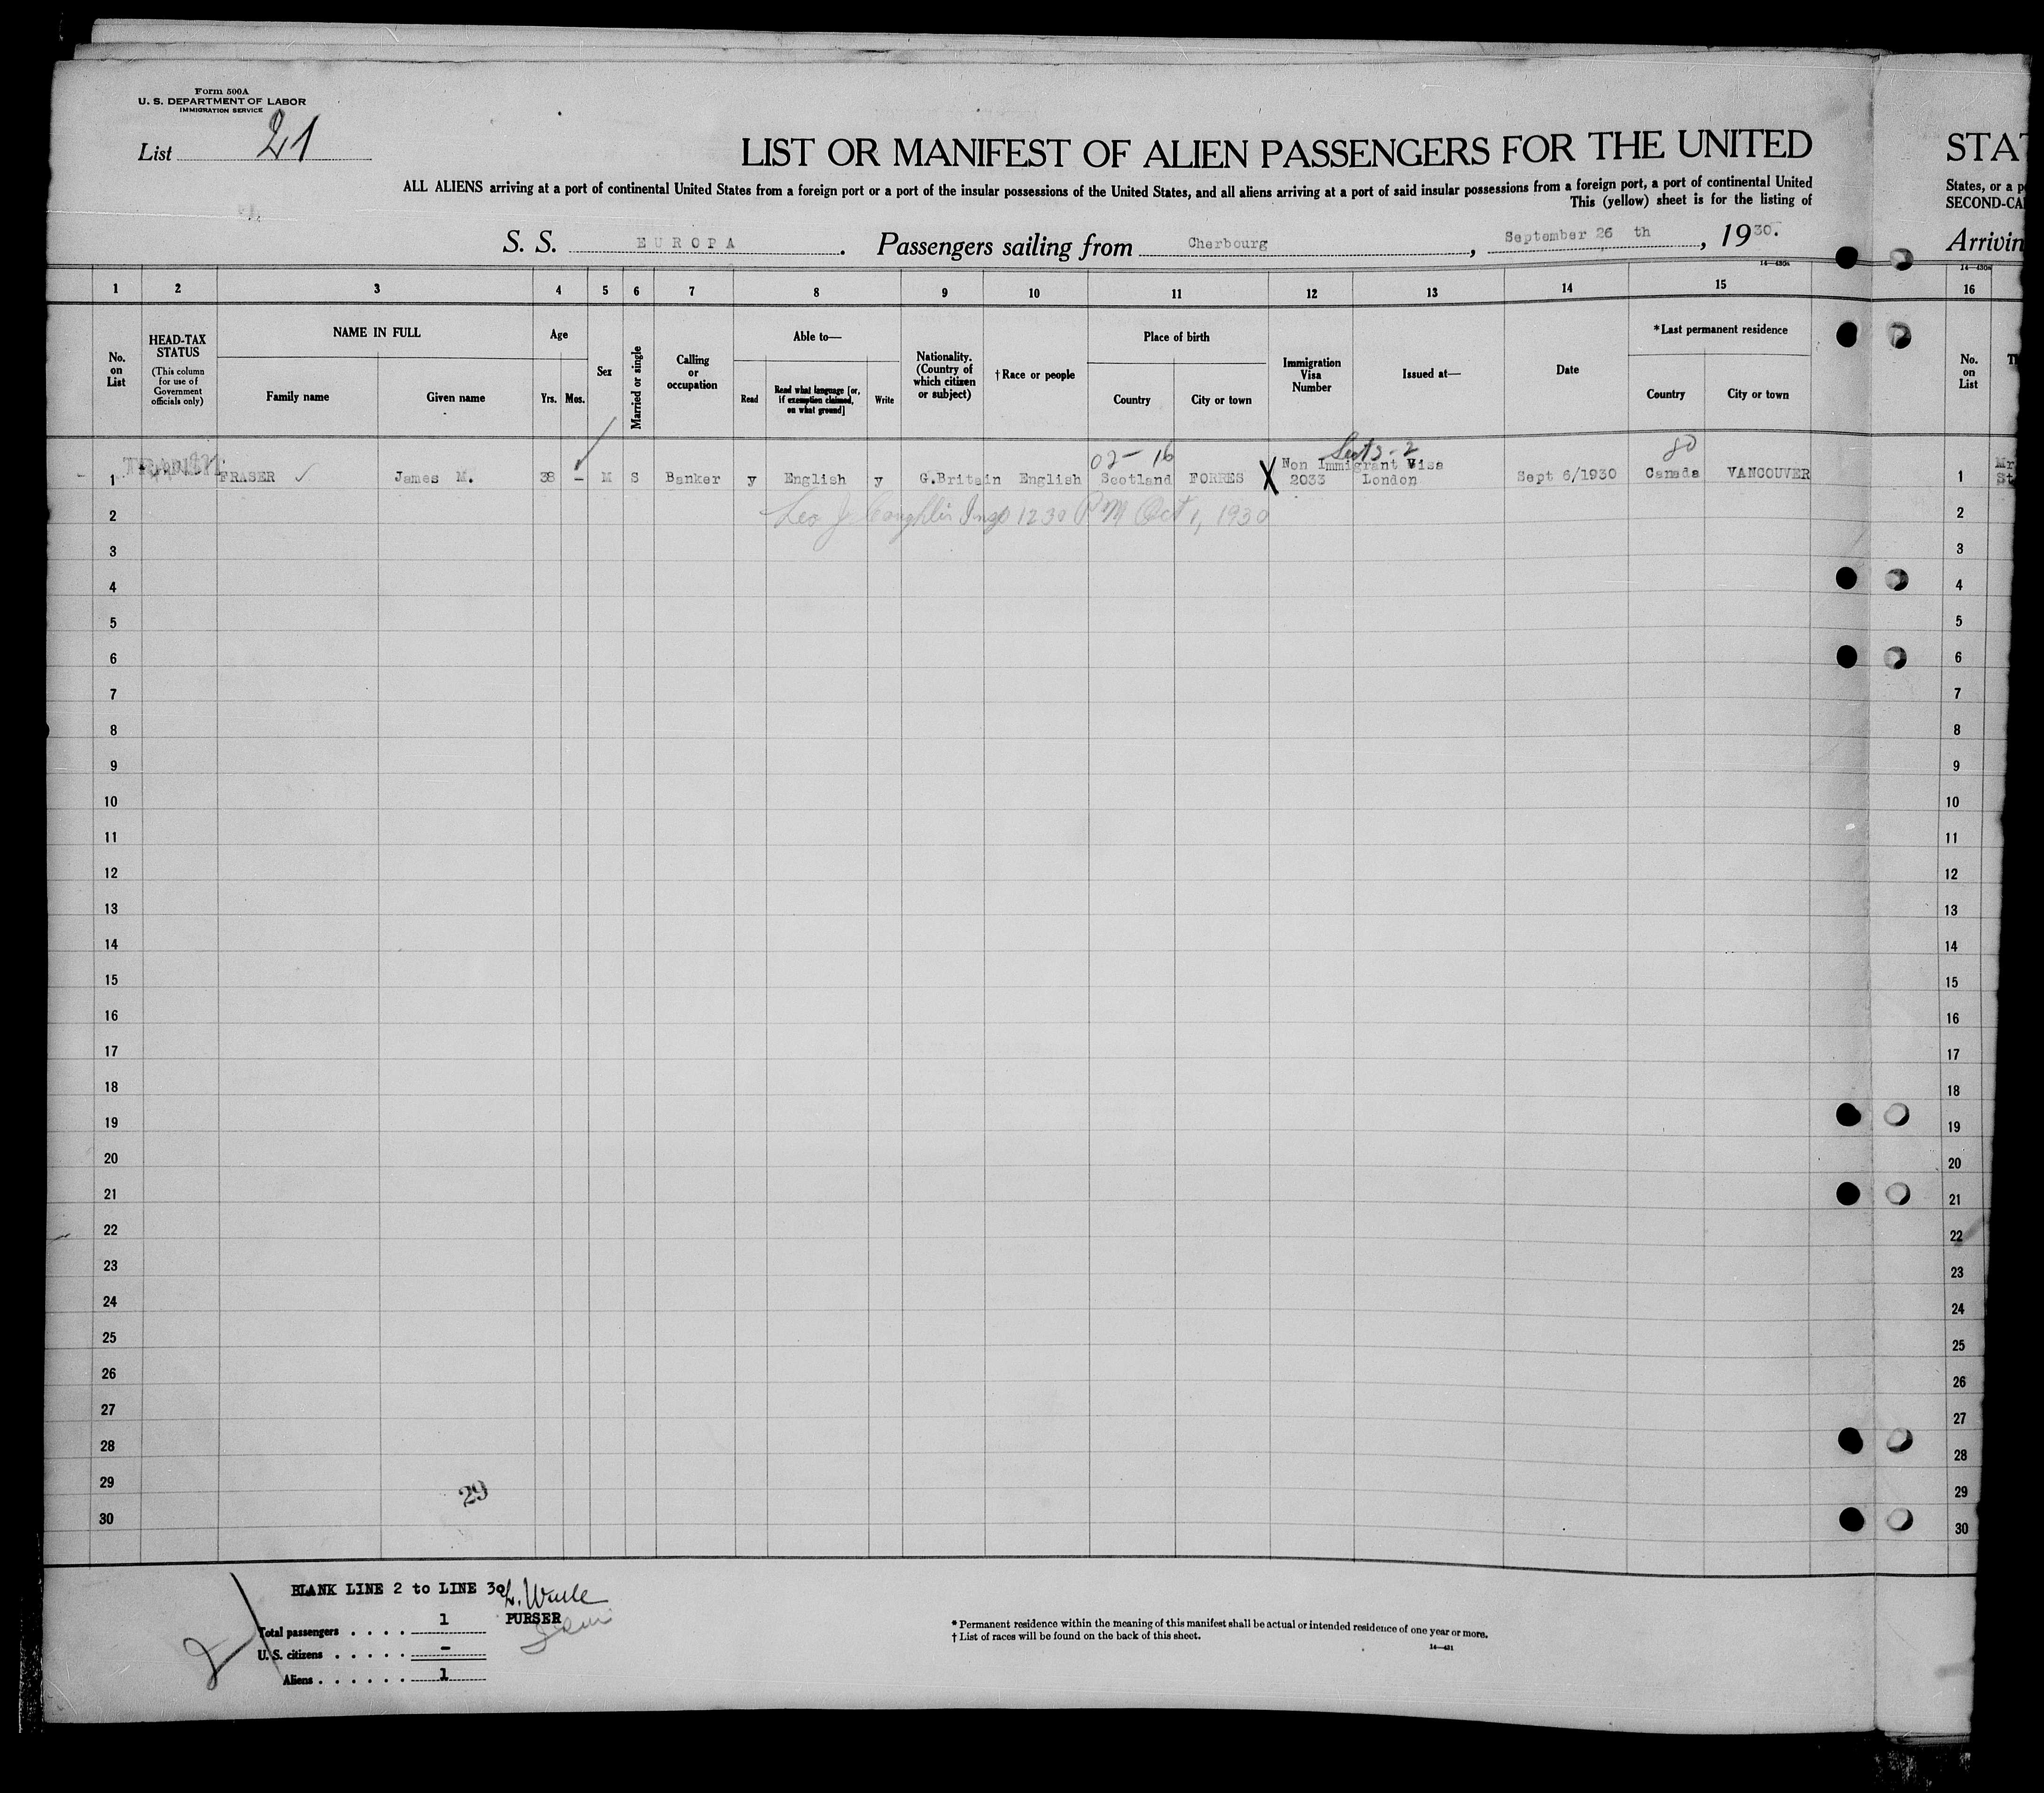 Form 500A
U. S. DEPARTMENT OF LABOR
IMMIGRATION SERVICE
List 21
LIST OR MANIFEST OF ALIEN PASSENGERS FOR THE UNITED
ALL ALIENS arriving at a port of continental United States from a foreign port or a port of the insular possessions of the United States, and all aliens arriving at a port of said insular possessions from a foreign port, a port of continental United
This (yellow) sheet is for the listing of
S. S. EUROPA. Passengers sailing from Cherbourg, September 26 th, 1930.
14—430a
1 2 3 4 5 6 7 8 9 10 11 12 13 14 15
No. on List
HEAD-TAX STATUS
(This column for use of Government officials only)
NAME IN FULL
Family name Given name
Age
Yrs. Mos.
Sex
Married or single
Calling or occupation
Able to—
Read Read what language [or, if exemption claimed, on what ground] Write
Nationality. (Country of which citizen or subject)
†Race or people
Place of birth
Country City or town
Immigration Visa Number
Issued at—
Date
*Last permanent residence
Country City or town
02- 16 80
Non Immigrant Visa
1 FRASER James M. 38 - M S Banker y English y G.Britain English Scotland FORRES X 2033 London Sept 6/1930 Canada VANCOUVER
2 Leo J Coughlin Insp 1230 PM Oct 1, 1930
3
4
5
6
7
8
9
10
11
12
13
14
15
16
17
18
19
20
21
22
23
24
25
26
27
28
29
29
30
BLANK LINE 2 to LINE 30
PURSER
Total passengers . . . . 1
U. S. citizens . . . . . -
Aliens . . . . . . 1
2
* Permanent residence within the meaning of this manifest shall be actual or intended residence of one year or more.
† List of races will be found on the back of this sheet.
14—431
STAT
States, or a p
SECOND-CA
Arrivin
14—430a
16
No. on List
1 Mr
St
2
3
4
5
6
7
8
9
10
11
12
13
14
15
16
17
18
19
20
21
22
23
24
25
26
27
28
29
30